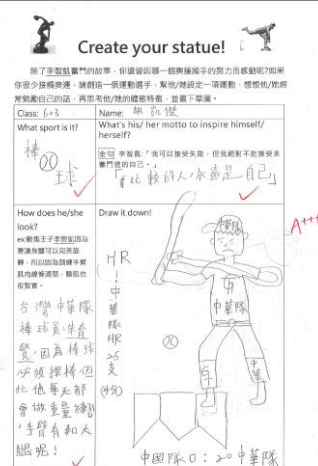 Create your statue!
除了李智凱奮鬥的故事，你還曾因哪一個奧運選手的努力而感動呢?如果
你很少接觸奧運，請創造一個運動選手，幫他/她設定一項運動、想想他/她經
常勉勵自己的話，再思考他/她的體態特徵，並畫下草圖。
Class: 603
Name: 胡 傑
What sport is it?
What's his/ her motto to inspire himself/
herself?
棒
球
金句 李智凱：「我可以接受失敗，但我絕對不能接受未
奮鬥過的自己。」
比較的人,永遠是自己」
A+++
How does he/she
look?
ex:鞍馬王子李智凱因為
要讓身體可以完美旋
轉，所以因為訓練手臂
肌肉線條清楚，腹肌也
很緊實。
Draw it down!
台灣中華隊
棒球員:
,因為棒球
必須揮棒,因
此他每天都
會做重量練習
,手臂有如大
腿呢!
HR
!
中
華
隊
HR
25
支
中華
中
中華隊
中
華
中國隊0:20中華隊